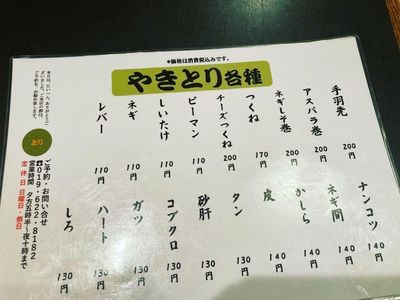 *価格は消費税込みです。
やきとり各種
手羽先 200円
アスパラ巻 200円
ネギしそ巻 200円
つくね 170円
チーズつくね 200円
ピーマン 110円
しいたけ 110円
ネギ 110円
レバー 110円
ナンコツ 140円
ネギ間 140円
かしら 140円
皮 140円
タン 130円
砂肝 130円
コブクロ 130円
ガツ 130円
ハート 130円
しろ 130円
とり
ご予約・お問い合せ
☎019・622・8182
営業時間 夕方五時半〜夜十時まで
定休日 日曜日・祭日